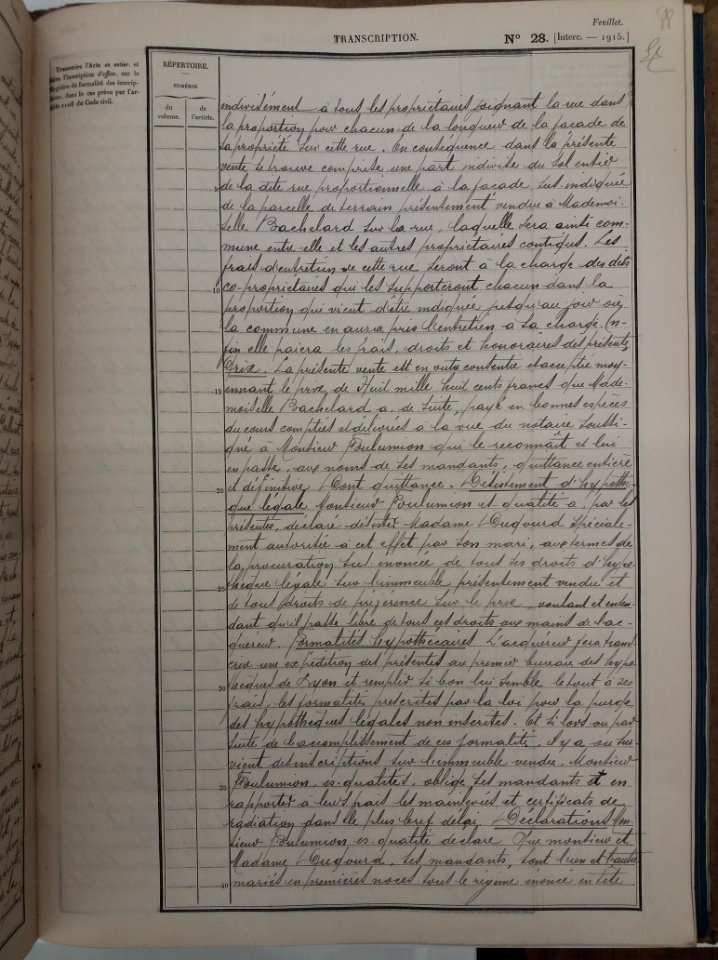 Feuillet.
TRANSCRIPTION.
N° 28. [Interc. — 1915.]
Transcrire l'Acte en entier, et
faire l'inscription d'office, sur le
Registre de formalité des inscrip-
tions, dans le cas prévu par l'ar-
ticle 2108 du Code civil.
RÉPERTOIRE.
NUMÉROS
du volume.
de l'article.
indivisément à tous les propriétaires joignant la rue dans
la proportion pour chacun de la longueur de la façade de
sa propriété sur cette rue. En conséquence dans la présente
vente se trouve comprise une part indivise du sol entier
de la dite rue proportionnelle à la façade sus indiquée
de la parcelle de terrain présentement vendue à Mademoi-
selle Bachelard sur la rue, laquelle sera ainsi com-
mune entre elle et les autres propriétaires contigus. Les
frais d'entretien de cette rue seront à la charge des dits
co-propriétaires qui les supporteront chacun dans la
10
proportion qui vient d'être indiquée jusqu'au jour où
la commune en aura pris l'entretien à sa charge. En-
fin elle paiera les frais, droits et honoraires des présentes
Prix. La présente vente est en outre consentie et acceptée moy-
ennant le prix de Huit mille huit cents francs que Made-
15
moiselle Bachelard a, de suite, payé en bonnes espèces
du cours comptées et délivrées à la vue du notaire soussi-
gné à Monsieur Foulumion qui le reconnaît et lui
en passe, aux noms de ses mandants, quittance entière
et définitive. Dont quittance. Désistement d'hypothè-
20
que légale Monsieur Foulumion es qualité a, par les
présentes, déclaré désister Madame Dugourd spéciale-
ment autorisée à cet effet par son mari, aux termes de
la procuration sus énoncée de tous ses droits d'hypo-
thèque légale sur l'immeuble, présentement vendu et
25
de tous droits de préférence sur le prix, voulant et enten-
dant qu'il passe libre de tous ces droits aux mains de l'ac-
quéreur. Formalités hypothécaires L'acquéreur fera trans-
crire une expédition des présentes au premier bureau des hypo-
thèques de Lyon et remplir si bon lui semble, le tout à ses
30
frais, les formalités prescrites par la loi pour la purge
des hypothèques légales non inscrites. Et si lors ou par
suite de l'accomplissement de ces formalités, il y a ou sur-
vient des inscriptions sur l'immeuble vendu, Monsieur
Foulumion, es-qualités, oblige ses mandants à en
35
rapporter à leurs frais les mainlevées et certificats de
radiation dans le plus bref délai. Déclarations Mon-
sieur Foulumion es-qualité déclare Que monsieur et
Madame Dugourd, ses mandants, sont l'un et l'autre
mariés en premières noces sous le régime énoncé en tête
40